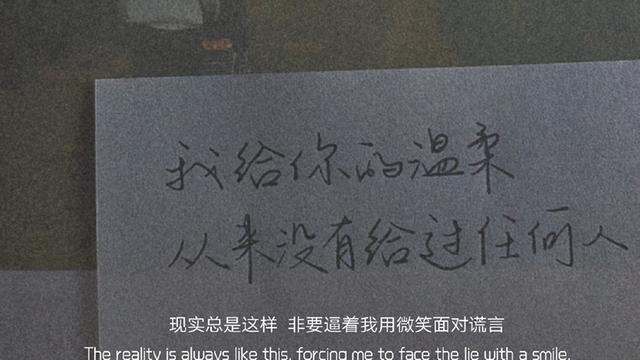 我给你的温柔
从来没有给过任何人
现实总是这样 非要逼着我用微笑面对谎言
The reality is always like this, forcing me to face the lie with a smile.